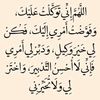 اللَّهُمَّ إِنِّي تَوَكَّلْتُ عَلَيْكَ،
وَفَوَّضْتُ أَمْرِي إِلَيْكَ، فَكُنْ
لِي خَيْرَ وَكِيلٍ، وَدَبِّرْ لِي أَمْرِي
فَإِنِّي لَا أُحْسِنُ التَّدْبِيرَ، وَاخْتَرْ
لِي وَلَا تُخَيِّرْنِي